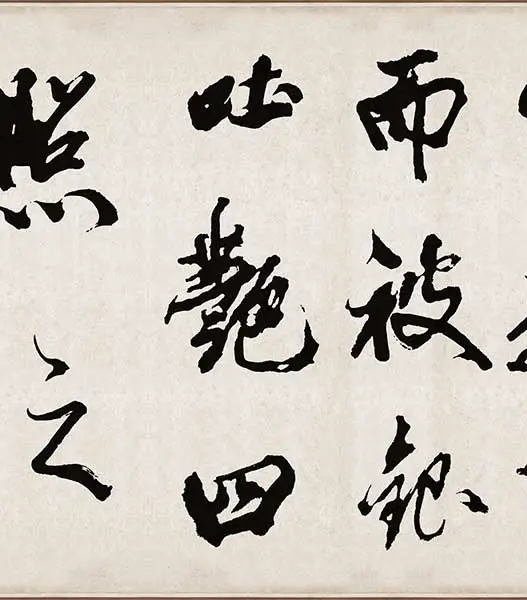 而被銀
吐艷四
照之